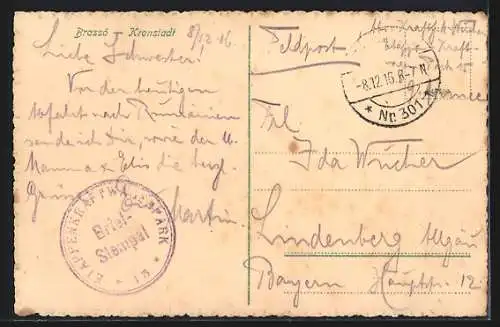 Brassó - Kronstadt
8/12 16.
Liebe Schwester!
Von der heutigen
Abfahrt nach Rumänien
sende ich Dir, sowie der lb.
Mamma u. die herzl.
Grüsse
Martin.
ETAPPENKRAFTWAGENPARK
Brief-
Stempel
* 13 *
Feldpost
-8.12.16. 6-7 N
* Nr. 301 *
Frl.
Ida Wucher
Lindenberg Allgäu
Bayern Hauptstr. 12.